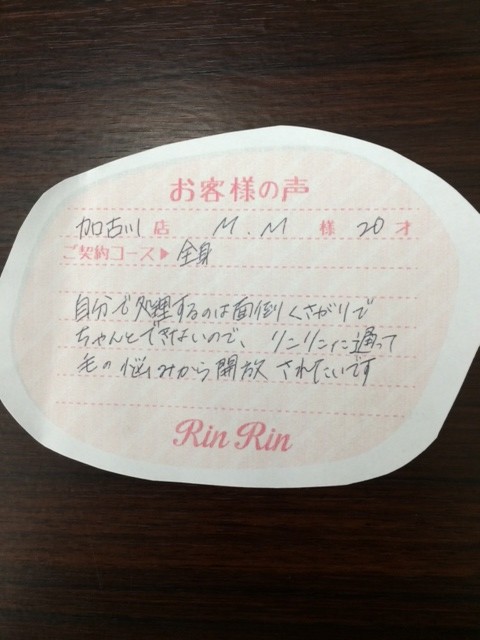 お客様の声
加古川 店 M.M 様 20 才
ご契約コース▶ 全身
自分で処理するのは面倒くさがりで
ちゃんとできないので、リンリンに通って
毛の悩みから開放されたいです
Rin Rin